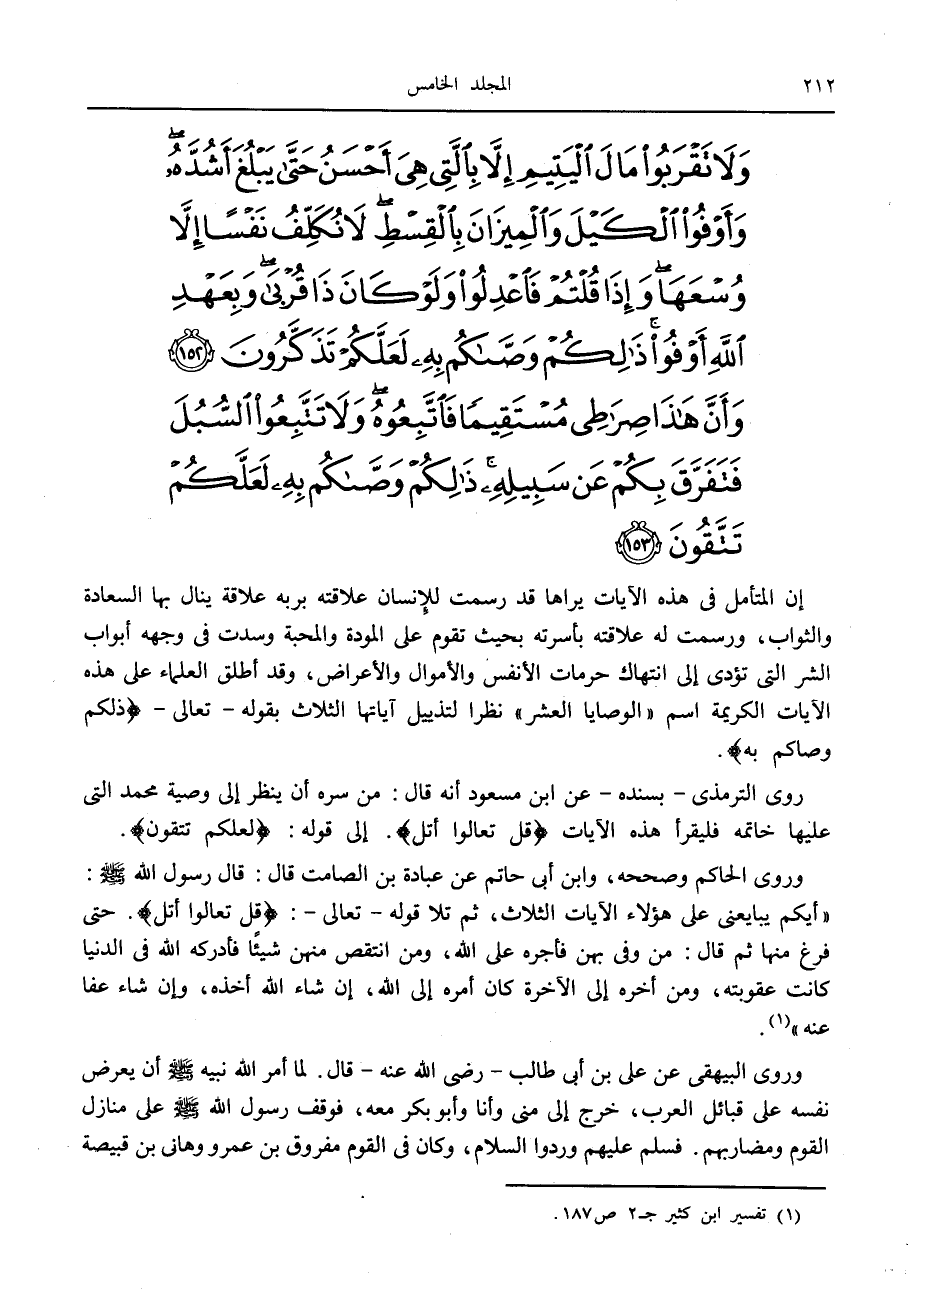 ٢١٢ المجلد الخامس
وَلَا تَقْرَبُوا۟ مَالَ ٱلْيَتِيمِ إِلَّا بِٱلَّتِى هِىَ أَحْسَنُ حَتَّىٰ يَبْلُغَ أَشُدَّهُۥ ۖ
وَأَوْفُوا۟ ٱلْكَيْلَ وَٱلْمِيزَانَ بِٱلْقِسْطِ ۖ لَا نُكَلِّفُ نَفْسًا إِلَّا
وُسْعَهَا ۖ وَإِذَا قُلْتُمْ فَٱعْدِلُوا۟ وَلَوْ كَانَ ذَا قُرْبَىٰ ۖ وَبِعَهْدِ
ٱللَّهِ أَوْفُوا۟ ۚ ذَٰلِكُمْ وَصَّىٰكُم بِهِۦ لَعَلَّكُمْ تَذَكَّرُونَ ١٥٢
وَأَنَّ هَٰذَا صِرَٰطِى مُسْتَقِيمًا فَٱتَّبِعُوهُ ۖ وَلَا تَتَّبِعُوا۟ ٱلسُّبُلَ
فَتَفَرَّقَ بِكُمْ عَن سَبِيلِهِۦ ۚ ذَٰلِكُمْ وَصَّىٰكُم بِهِۦ لَعَلَّكُمْ
تَتَّقُونَ ١٥٣
إن المتأمل فى هذه الآيات يراها قد رسمت للإنسان علاقته بربه علاقة ينال بها السعادة
والثواب، ورسمت له علاقته بأسرته بحيث تقوم على المودة والمحبة وسدت فى وجهه أبواب
الشر التى تؤدى إلى انتهاك حرمات الأنفس والأموال والأعراض، وقد أطلق العلماء على هذه
الآيات الكريمة اسم «الوصايا العشر» نظرا لتذييل آياتها الثلاث بقوله - تعالى - ﴿ذلكم
وصاكم به﴾.
روى الترمذى - بسنده - عن ابن مسعود أنه قال : من سره أن ينظر إلى وصية محمد التى
عليها خاتمه فليقرأ هذه الآيات ﴿قل تعالوا أتل﴾. إلى قوله : ﴿لعلكم تتقون﴾.
وروى الحاكم وصححه، وابن أبى حاتم عن عبادة بن الصامت قال : قال رسول الله ﷺ :
«أيكم يبايعنى على هؤلاء الآيات الثلاث، ثم تلا قوله - تعالى - : ﴿قل تعالوا أتل﴾. حتى
فرغ منها ثم قال : من وفى بهن فأجره على الله، ومن انتقص منهن شيئًا فأدركه الله فى الدنيا
كانت عقوبته، ومن أخره إلى الآخرة كان أمره إلى الله، إن شاء الله أخذه، وإن شاء عفا
عنه»(١).
وروى البيهقى عن على بن أبى طالب - رضى الله عنه - قال. لما أمر الله نبيه ﷺ أن يعرض
نفسه على قبائل العرب، خرج إلى منى وأنا وأبو بكر معه، فوقف رسول الله ﷺ على منازل
القوم ومضاربهم. فسلم عليهم وردوا السلام، وكان فى القوم مفروق بن عمرو وهانى بن قبيصة
(١) تفسير ابن كثير جـ٢ ص١٨٧.